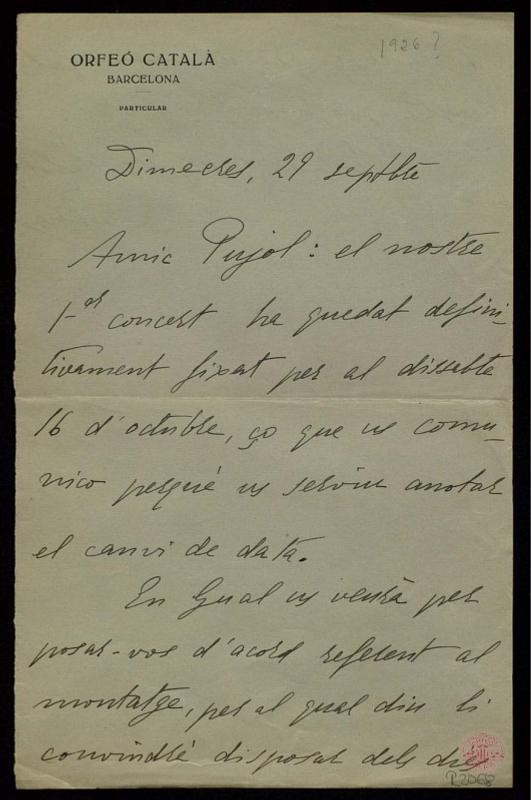 1926?
ORFEÓ CATALÀ
BARCELONA
PARTICULAR
Dimecres, 29 septbre
Amic Pujol: el nostre
1-er concert ha quedat defini-
tivament fixat per al dissabte
16 d'octubre, ço que us comu-
nico perquè us serviu anotar
el canvi de data.
En Gual us veurà per
posar-vos d'acord referent al
montatge, per al qual diu li
convindrè disposar dels dies
P.2068